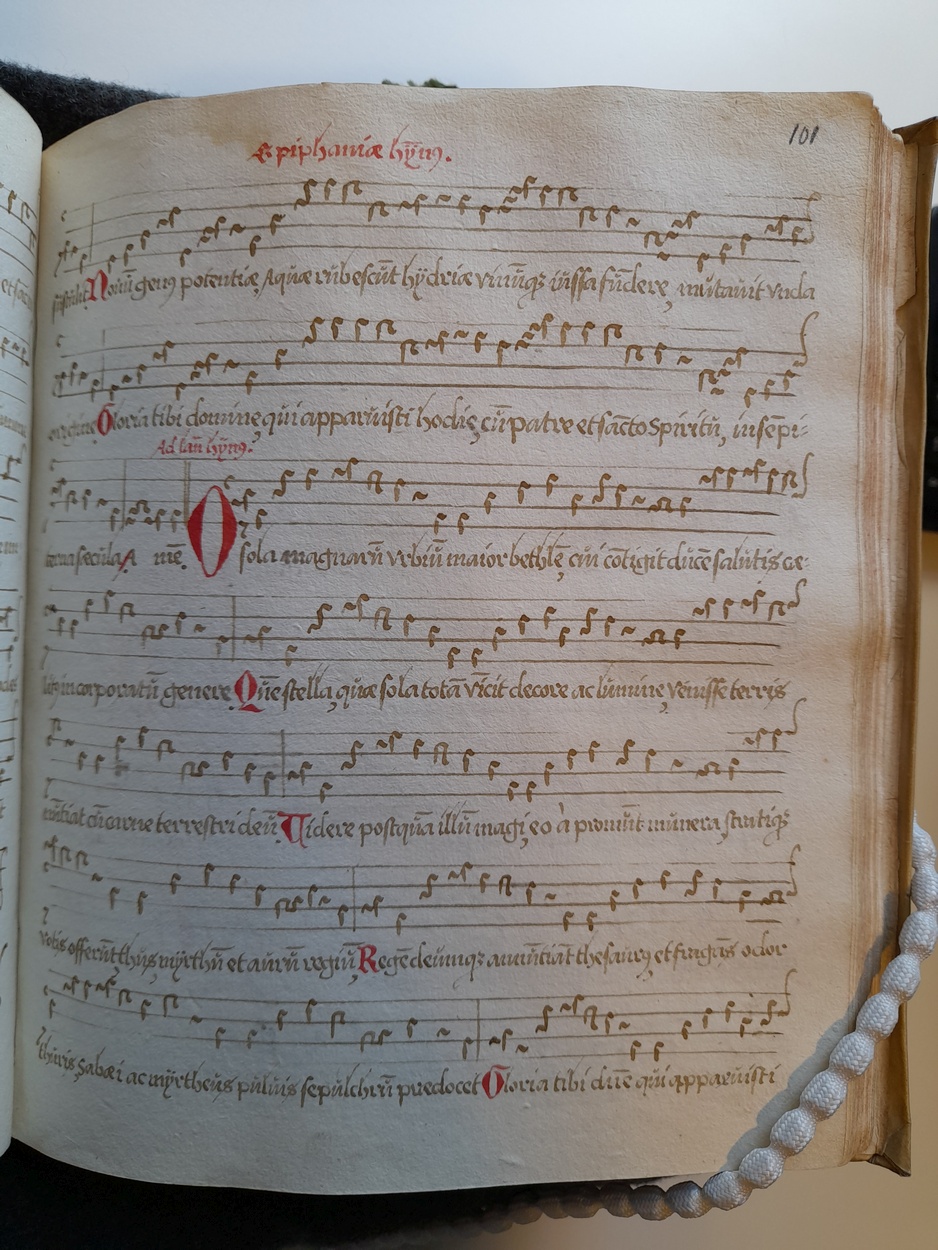 Epiphaniæ hym9.
101
sustulit Novū gen9 potentiæ, Aquæ rubescūt hydriæ vinūq3 iussa fūdere, mutavit unda
origine Gloria tibi domine, qui apparuisti hodie, cū patre et sācto Spiritū, in sēpi-
Ad lau hym9.
terna secula A mē. O sola magnarū urbiū maior bethlē, cui cōtigit ducē salutis cæ-
lit9 in corporatū genere Quē stella, quæ sola totā vicit decore ac lumine, venisse terris
nūtiat cū carne terrestri deū Videre postquā illū magi, eo à promūt munera stratiq3
votis offerūt, thus, myrthū et aurū regiū, Regē deumq3 anuntiāt thesaur9, et fragās odor
thuris Sabæi ac myrtheus pulvis sepulchrū predocet Gloria tibi dñe qui apparuisti